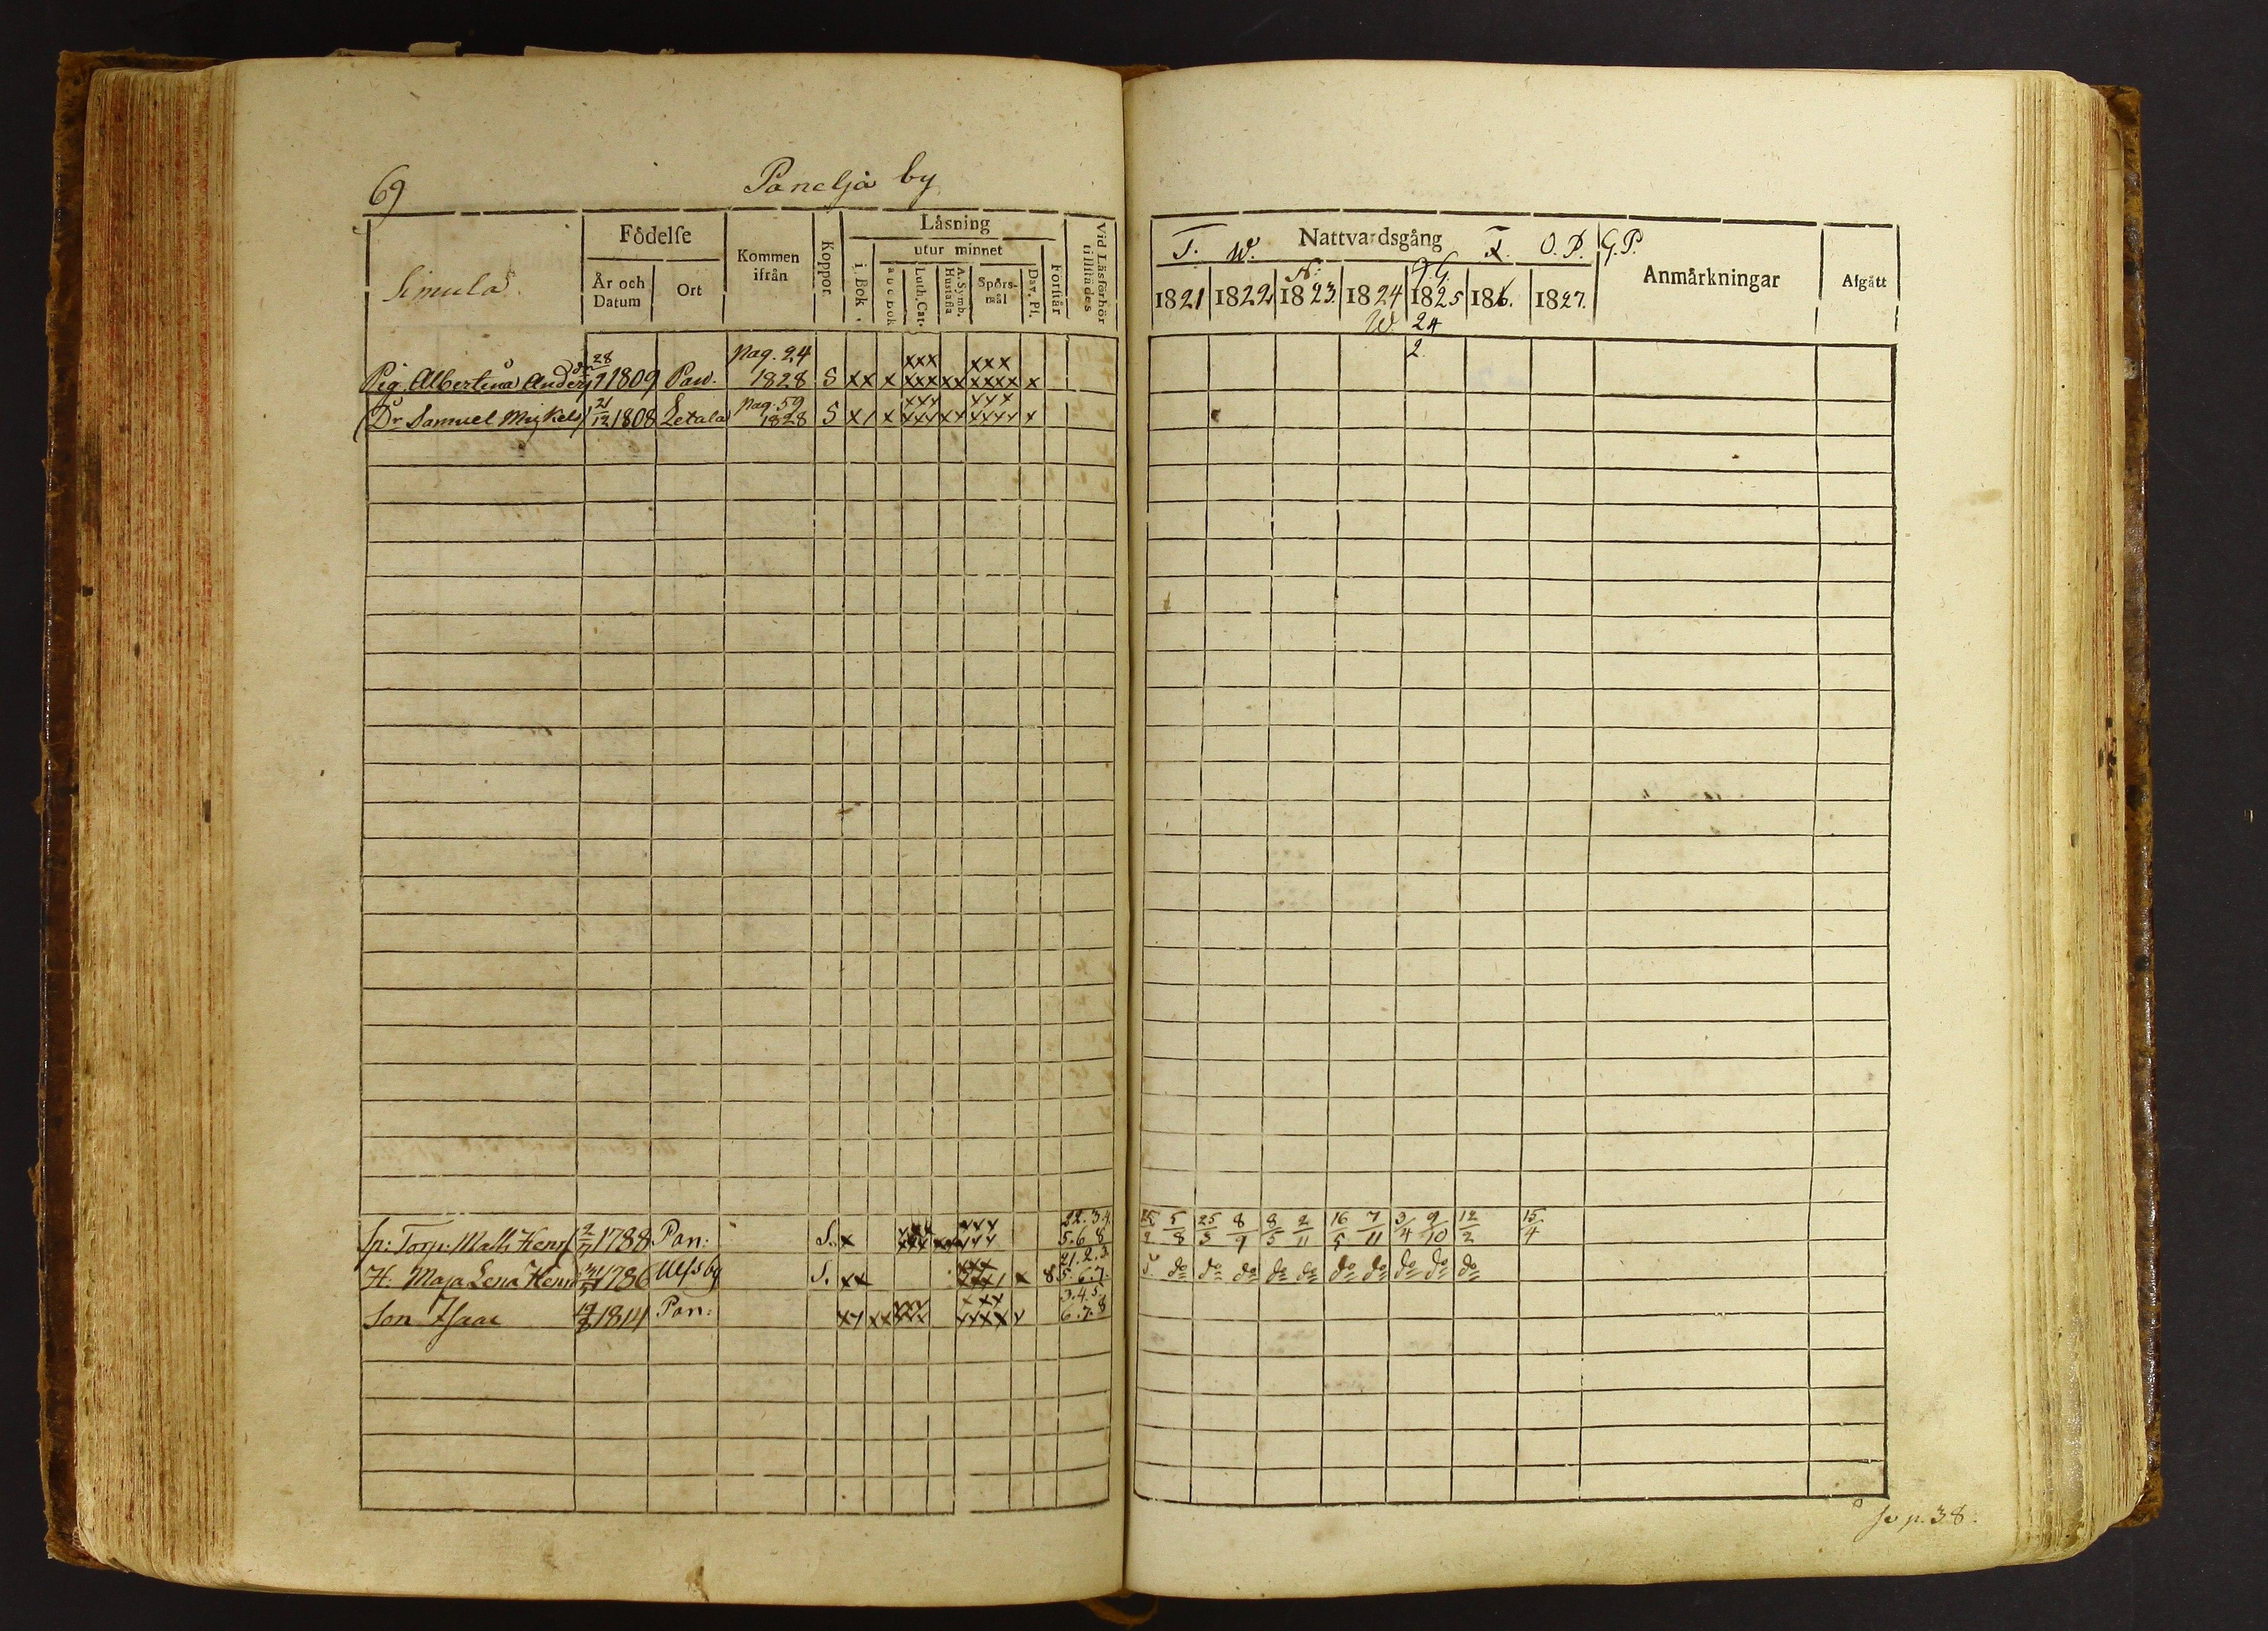 69 Panelja by
Födelse Kommen ifrån Koppor Läsning Vid Läsförhör tillstädes
Simula År och Datum Ort i Bok utur minnet Förstår
a b c bok Luth. Cat. A. Symb. Hustafla Spörsmål Dav. Ps.
Pig. Albertina Anders dr 28/9 1809 Paw. pag. 24 1828 S xx x xxx xxx xx xxx xxxx x
Dr Samuel Mickels 21/12 1808 Letala pag. 59 1828 S x/ x xxx xxx xx xxx xxxx x
Sp: Torp: Matts Henr 1788 Pan: S. x 22.3.4. 5.6 8
H. Maja Lena Henr 1786 Ulfsby S. xx x 8 21.2.3. 5.6.7.
Son Isaac 1814 Pan: xx xx xxx xxx x xx xxxx x 3.4.5. 6.7.8
T. W. Nattvardsgång T. O.P. G.P. Anmärkningar Afgått
N: O.G.
1821 1822 1823. 1824 1825 186. 1827.
W. 24
2.
5/8 25/3 8/9 8/5 2/11 16/5 7/11 3/4 9/10 12/2 15/4
do do do do do do do do do do
se p. 38.